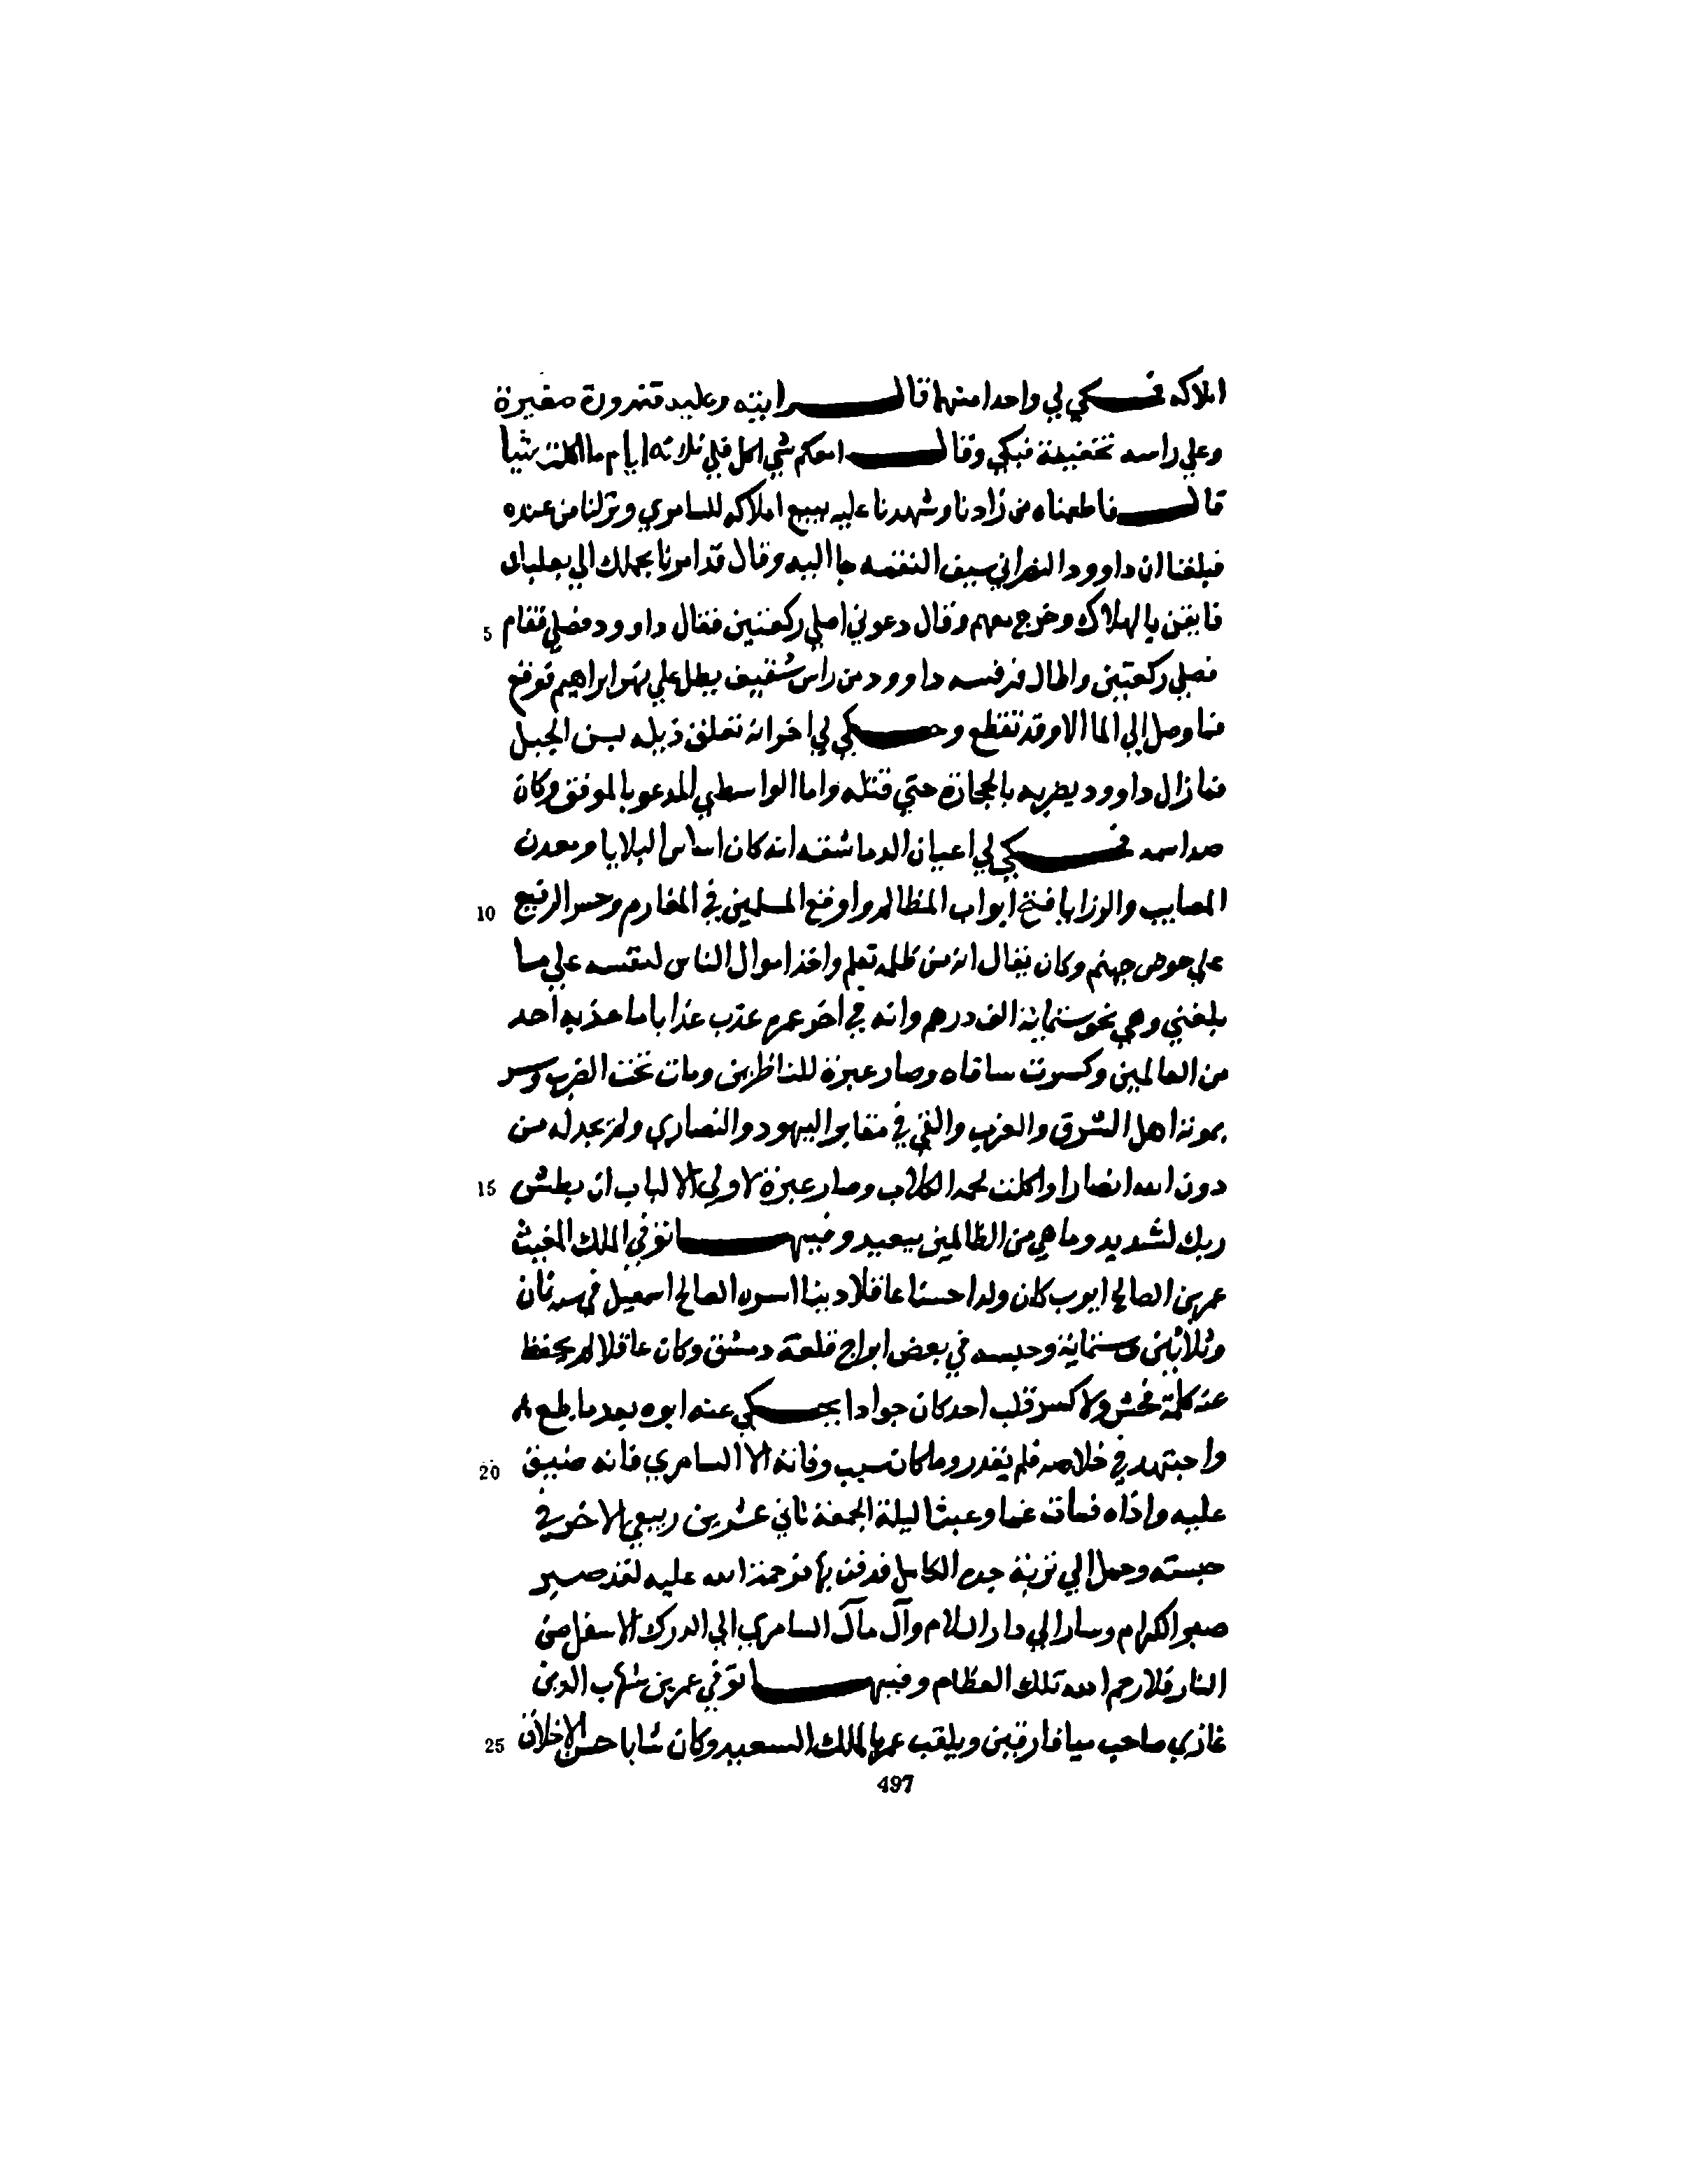 املاكه فحكي لي واحد منهم قال رايته وعليه قندورة صغيرة
وعلي راسه تخفيفة فبكي وقال امعكم شي اكل فلي ثلاثه ايام ما اكلت شيا
قال فاطعمناه من زادنا وشهدنا عليه ببيع املاكه للسامري ونزلنا من عنده
فبلغنا ان داوود النصراني سيف النقمه جا اليه وقال قد امرنا بحملك الي بعلبك
فايقن بالهلاك وخرج معهم وقال دعوني اصلي ركعتين فقال داوود فصلي فقام
فصلي ركعتين واطال فرفسه داوود من راس شقيف يطل علي نهر ابراهيم فوقع
فما وصل الي الما الا وقد تقطع وحكي لي اخر انه تعلق ذيله بسن الجبل
فما زال داوود يضربه بالحجارة حتي قتله واما الواسطي المدعو بالموفق وكان
صد اسمه فحكي لي اعيان الدماشقه انه كان اساس البلايا ومعدن
المصايب والرزايا فتح ابواب المظالم واوقع المسلمين في المغارم وجسر الرفيع
علي حوض جهنم وكان يقال انه من ظلمه تعلم واخذ اموال الناس لنفسه علي ما
بلغني وهي نحو ستماية الف درهم وانه في اخر عمره عذب عذابا ما عذبه احد
من العالمين وكسرت ساقاه وصار عبرة للناظرين ومات تحت الضرب وسر
بموته اهل الشرق والغرب والقي في مقابر اليهود والنصاري ولم يجد له من
دون الله انصارا واكلت لحمه الكلاب وصار عبرة لاولي الالباب ان بطش
ربك لشديد وما هي من الظالمين ببعيد وفيها توفي الملك المغيث
عمر بن الصالح ايوب كان ولدا حسنا عاقلا دينا اسره الصالح اسمعيل في سنه ثمان
وثلاثين وستماية وحبسه في بعض ابراج قلعة دمشق وكان عاقلا لم يحفظ
عنه كلمة فحش ولا كسر قلب احد كان جوادا يحكي عنه ابوه بعد ما طمع
واجتهد في خلاصه فلم يقدر وما كان سبب وفاته الا السامري فانه ضيق
عليه واذاه فمات غما وعبثا ليلة الجمعة ثاني عشرين ربيع الاخر في
حبسته وحمل الي تربة جده الكامل فدفن بها فرحمة الله عليه لقد صبر
صبر الكرام وسار الي دار السلام وآل مآل السامري الي الدرك الاسفل من
النار فلا رحم الله تلك العظام وفيها توفي عمر بن شهاب الدين
غازي صاحب ميافارقين ويلقب عمر بالملك السعيد وكان شابا حسن الاخلاق
5
10
15
20
25
497